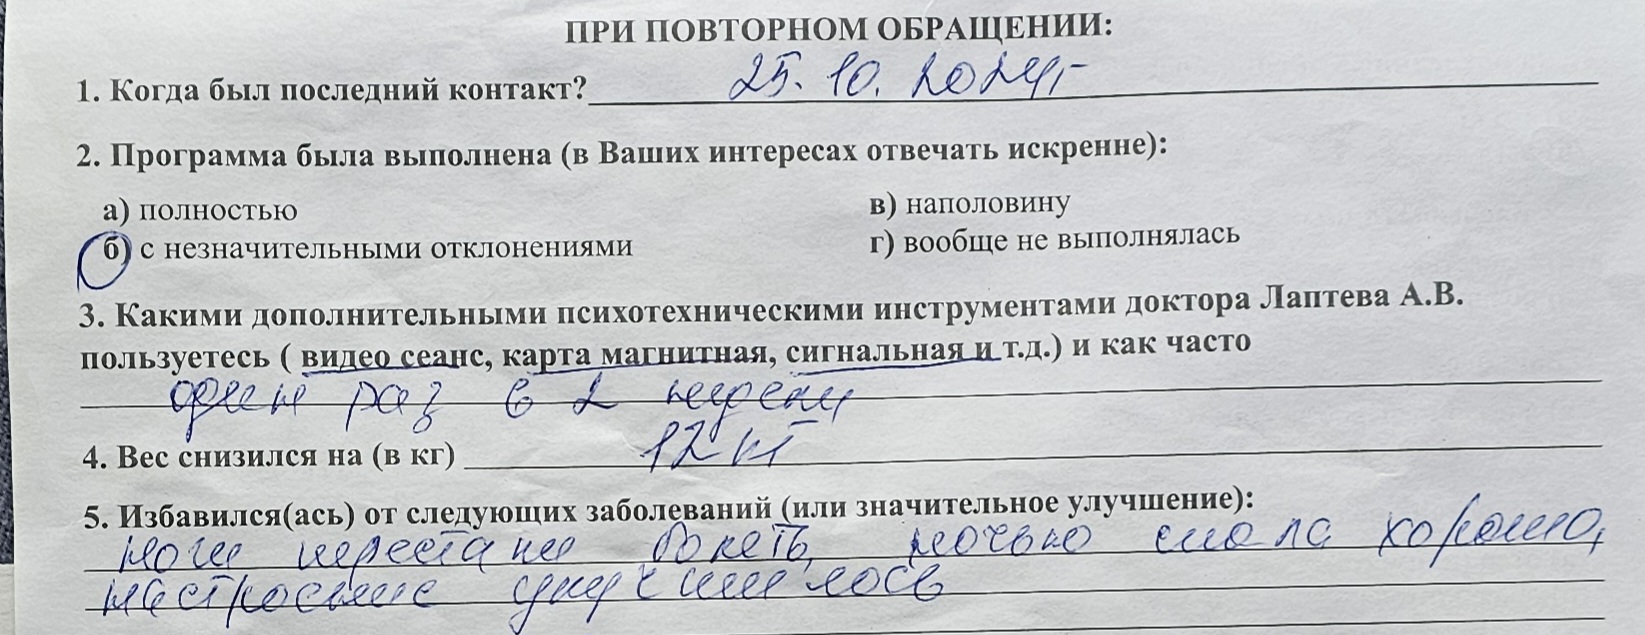 ПРИ ПОВТОРНОМ ОБРАЩЕНИИ:
1. Когда был последний контакт? 25.10.2024г
2. Программа была выполнена (в Ваших интересах отвечать искренне):
а) полностью
в) наполовину
б) с незначительными отклонениями
г) вообще не выполнялась
3. Какими дополнительными психотехническими инструментами доктора Лаптева А.В.
пользуетесь ( видео сеанс, карта магнитная, сигнальная и т.д.) и как часто
один раз в 2 недели
4. Вес снизился на (в кг) 12 кг
5. Избавился(ась) от следующих заболеваний (или значительное улучшение):
ноги перестали болеть, ночью спала хорошо,
настроение улучшилось